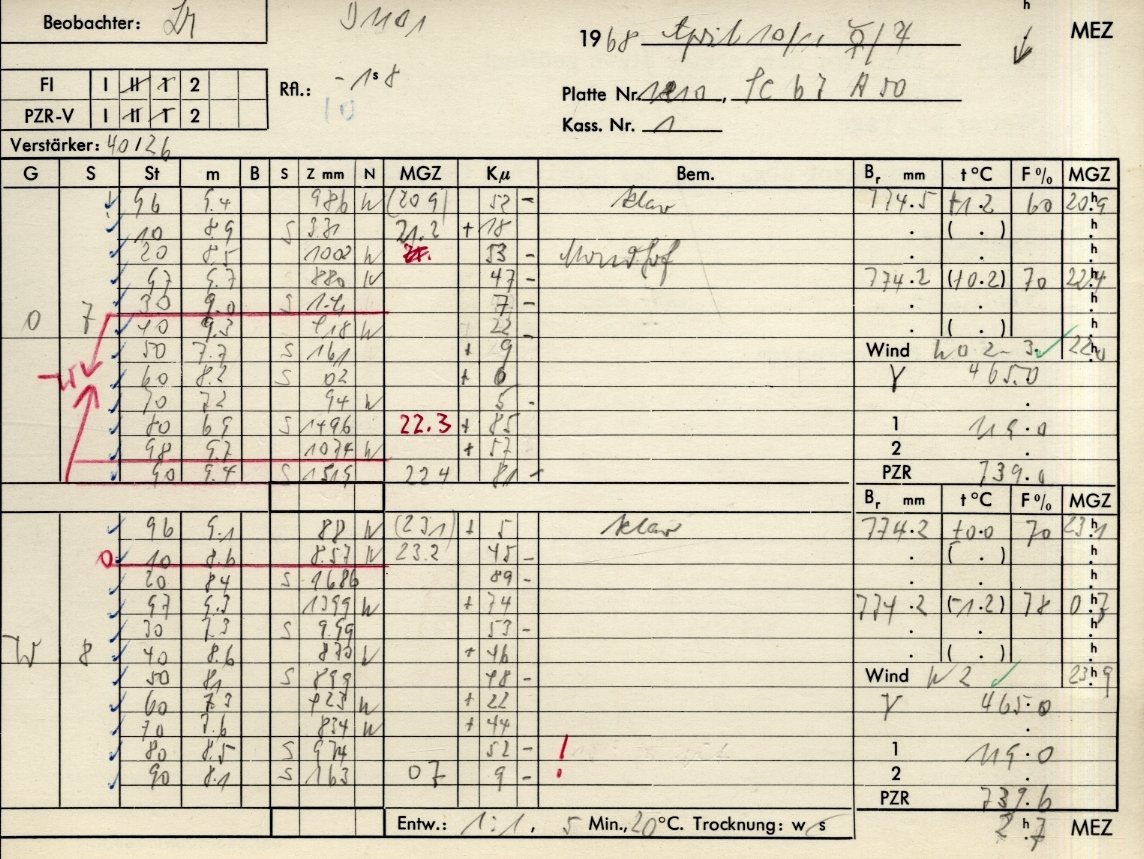 Beobachter:
1968 April 10/11
h
MEZ
FI I II 1 2
Rfl.: - 1s 8
10
PZR-V I II 1 2
Platte Nr. , A 50
Kass. Nr. 1
Verstärker: 40/26
G S St m B S Z mm N MGZ Kμ Bem. Br mm t °C F % MGZ
96 9.4 986 W (20 9) 52 - klar 774.5 +1.2 60 20h9
10 8.9 S 21.2 + 18 ( . ) h
20 8.5 1002 W 53 - Mondhof h
97 9.7 880 W 47 - 774.2 (+0.2) 70 22h4
30 9.0 S 7 - h
0 7 40 9.3 W 22 ( . ) h
50 7.7 S 161 + 9 Wind
W 60 8.2 S 02 + 0 γ 465.0
70 7.2 94 W 5 -
80 6.9 S 1496 22.3 + 85 1 119.0
98 9.7 1074 W + 57 2
90 9.4 S 1519 22 4 81 - PZR 739.
Br mm t °C F % MGZ
96 9.1 88 W (23 1) + 5 klar 774.2 +0.0 70 23h1
0 10 8.6 8.57 W 23.2 45 - ( . ) h
20 8.4 S 1686 89 - h
97 9.3 1399 W + 74 774.2 (-1.2) 78 0h7
30 7.3 S 9.99 53 - h
W 8 40 8.6 870 W + 46 ( . ) h
50 8.1 S 899 48 - Wind W 2 23h9
60 7.3 423 W + 22 γ 465.0
70 7.6 834 W + 44
80 8.5 S 974 52 - ! 1 119.0
90 8.1 S 163 0 7 9 - ! 2
PZR 739.6
Entw.: 1:1, 5 Min., 20°C. Trocknung: w s 2h7 MEZ